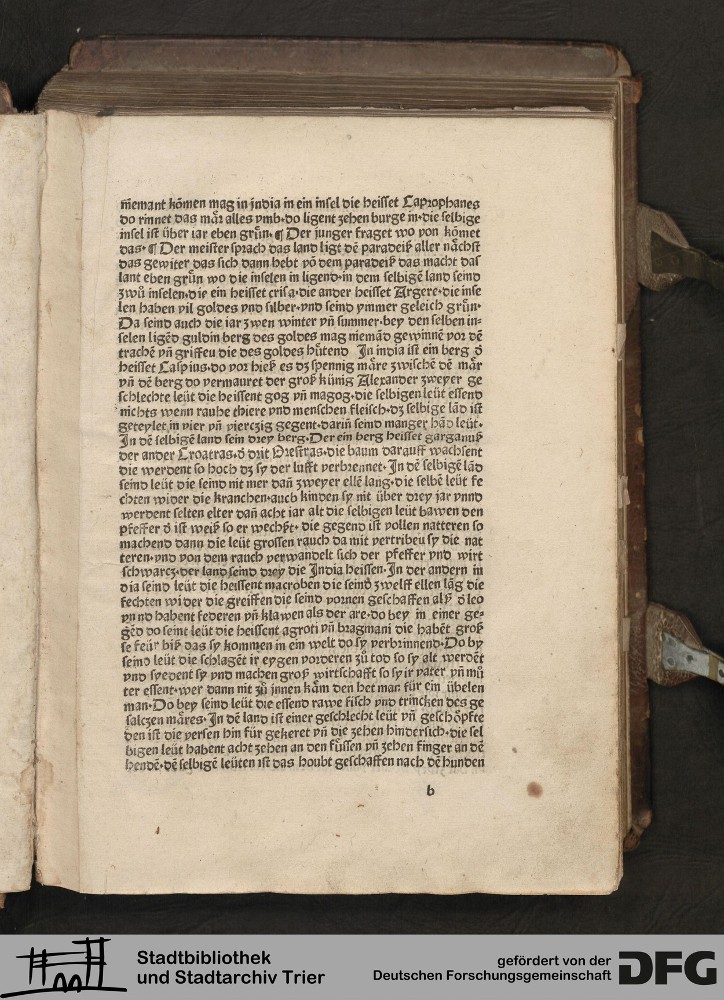 m̄emant kōmen mag in jndia in ein insel die heisset Caprophanes
do rinnet das mär alles vmb·do ligent zehen burge in·die selbige
insel ist über iar eben grün·¶ Der junger fraget wo von kōmet
das·¶ Der meister sprach das land ligt dē paradeiß aller nächst
das gewiter das sich dann hebt vō dem paradeiß das macht das
lant eben grün wo die inselen in ligend·in dem selbigē land seind
zwů inselen·die ein heisset crisa·die ander heisset Argere·die inse
len haben vil goldes vnd silber·vnd seind ymmer geleich grün·
Da seind auch die iar zwen winter vn̄ summer·bey den selben in⸗
selen ligēd guldin berg des goldes mag niemād gewinnē vor dē
trachē vn̄ griffeu die des goldes hůtend In india ist ein berg d̓
heisset Caspius·do vor hieß es dz spennig märe zwischē dē mär
vn̄ dē berg do vermauret der groß künig Alexander zweyer ge
schlechte leüt die heissent gog vn̄ magog·die selbigen leüt essend
nichts wenn rauhe thiere vnd menschen fleisch·dz selbige lād ist
geteylet in vier vn̄ vierczig gegent·darin̄ seind manger hād leüt·
In dē selbigē land sein drey berg·Der ein berg heisset garganuß
der ander Croatras·d̓ drit Nrestras·die baum darauff wachsent
die werdent so hoch dz sy der lufft verbrennet·In dē selbigē lād
seind leüt die seind nit mer dan̄ zweyer ellē lang·die selbē leüt fe
chten wider die kranchen·auch kinden sy nit über drey jar vnnd
werdent selten elter dan̄ acht iar alt die selbigen leüt bawen den
pfeffer d̓ ist weiß so er wechßt·die gegend ist vollen natteren so
machend dann die leüt grossen rauch da mit vertribeu sy die nat
teren·vnd von dem rauch verwandelt sich der pfeffer vnd wirt
schwarcz·der land seind drey die India heissen·In der andern in
dia seind leüt die heissent macroben die seind zwelff ellen lāg die
fechten wider die greiffen die seind vornen geschaffen alß d̓ leo
vnnd habent federen vn̄ klawen als der are·do bey in einer ge⸗
gēd do seint leüt die heissent agroti vn̄ bragmani die habēt groß
se feür biß das sy kommen in ein welt do sy verbrinnend·Do by
seind leüt die schlagēt ir eygen vorderen zů tod so sy alt werdēt
vnd syedent sy vnd machen groß wirtschafft so sy ir vater vn̄ mů
ter essent·wer dann nit zů jnnen kām den het man für ein übelen
man·Do bey seind leüt die essend rawe fisch vnd trincken des ge
salczen märes·In dē land ist einer geschlecht leüt vn̄ geschöpfte
den ist die versen hin für gekeret vn̄ die zehen hindersich·die sel
bigen leüt habent acht zehen an den füssen vn̄ zehen finger an dē
hendē·dē selbigē leüten ist das houbt geschaffen nach dē hunden
b
Stadtbibliothek
und Stadtarchiv Trier
gefördert von der
Deutschen Forschungsgemeinschaft
DFG